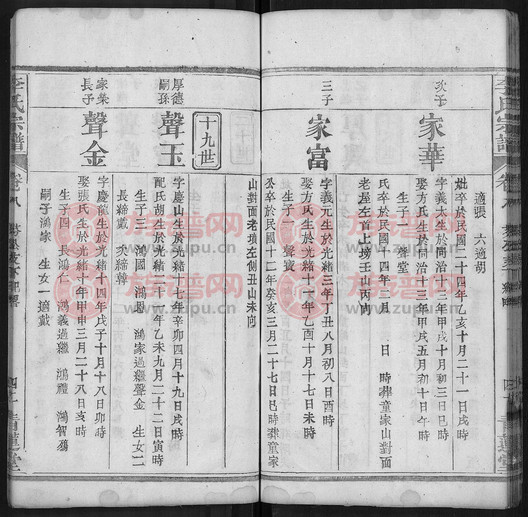 李氏宗譜
卷八
適張 六適胡
妣卒於民國二十四年乙亥十月二十一日戌時
次子
家華
字義太生於同治十三年甲戌十月初三日巳時
娶方氏生於同治十三年甲戌五月初十日午時
生子一 聲堂
氏卒於民國十四年三月 日 時葬童家山對面
老屋左首上塝壬山丙向
三子
家富
字義元生於光緒三年丁丑八月初八日酉時
娶方氏生於光緒十一年乙酉十月十七日未時
公卒於民國十二年癸亥三月二十七日巳時葬童家
山對面老墳左側丑山未向
十九世
厚德
嗣孫
聲玉
字慶山生於光緒十七年辛卯四月十九日戌時
配氏胡生於光緒二十一年乙未九月二十二日寅時
生子三 鴻國 鴻恩 鴻家過繼聲金 生女二
長締戴 次締韓
家榮
長子
聲金
字慶龍生於光緒十四年戊子十月十八日卯時
娶張氏生於光緒十年甲申三月二十八日亥時
生子四 長子 鴻義過繼 鴻禮 鴻智殤
嗣子鴻家 生女一適戴
李氏宗譜
卷八
青蓮堂
族譜网
www.zupu.cn